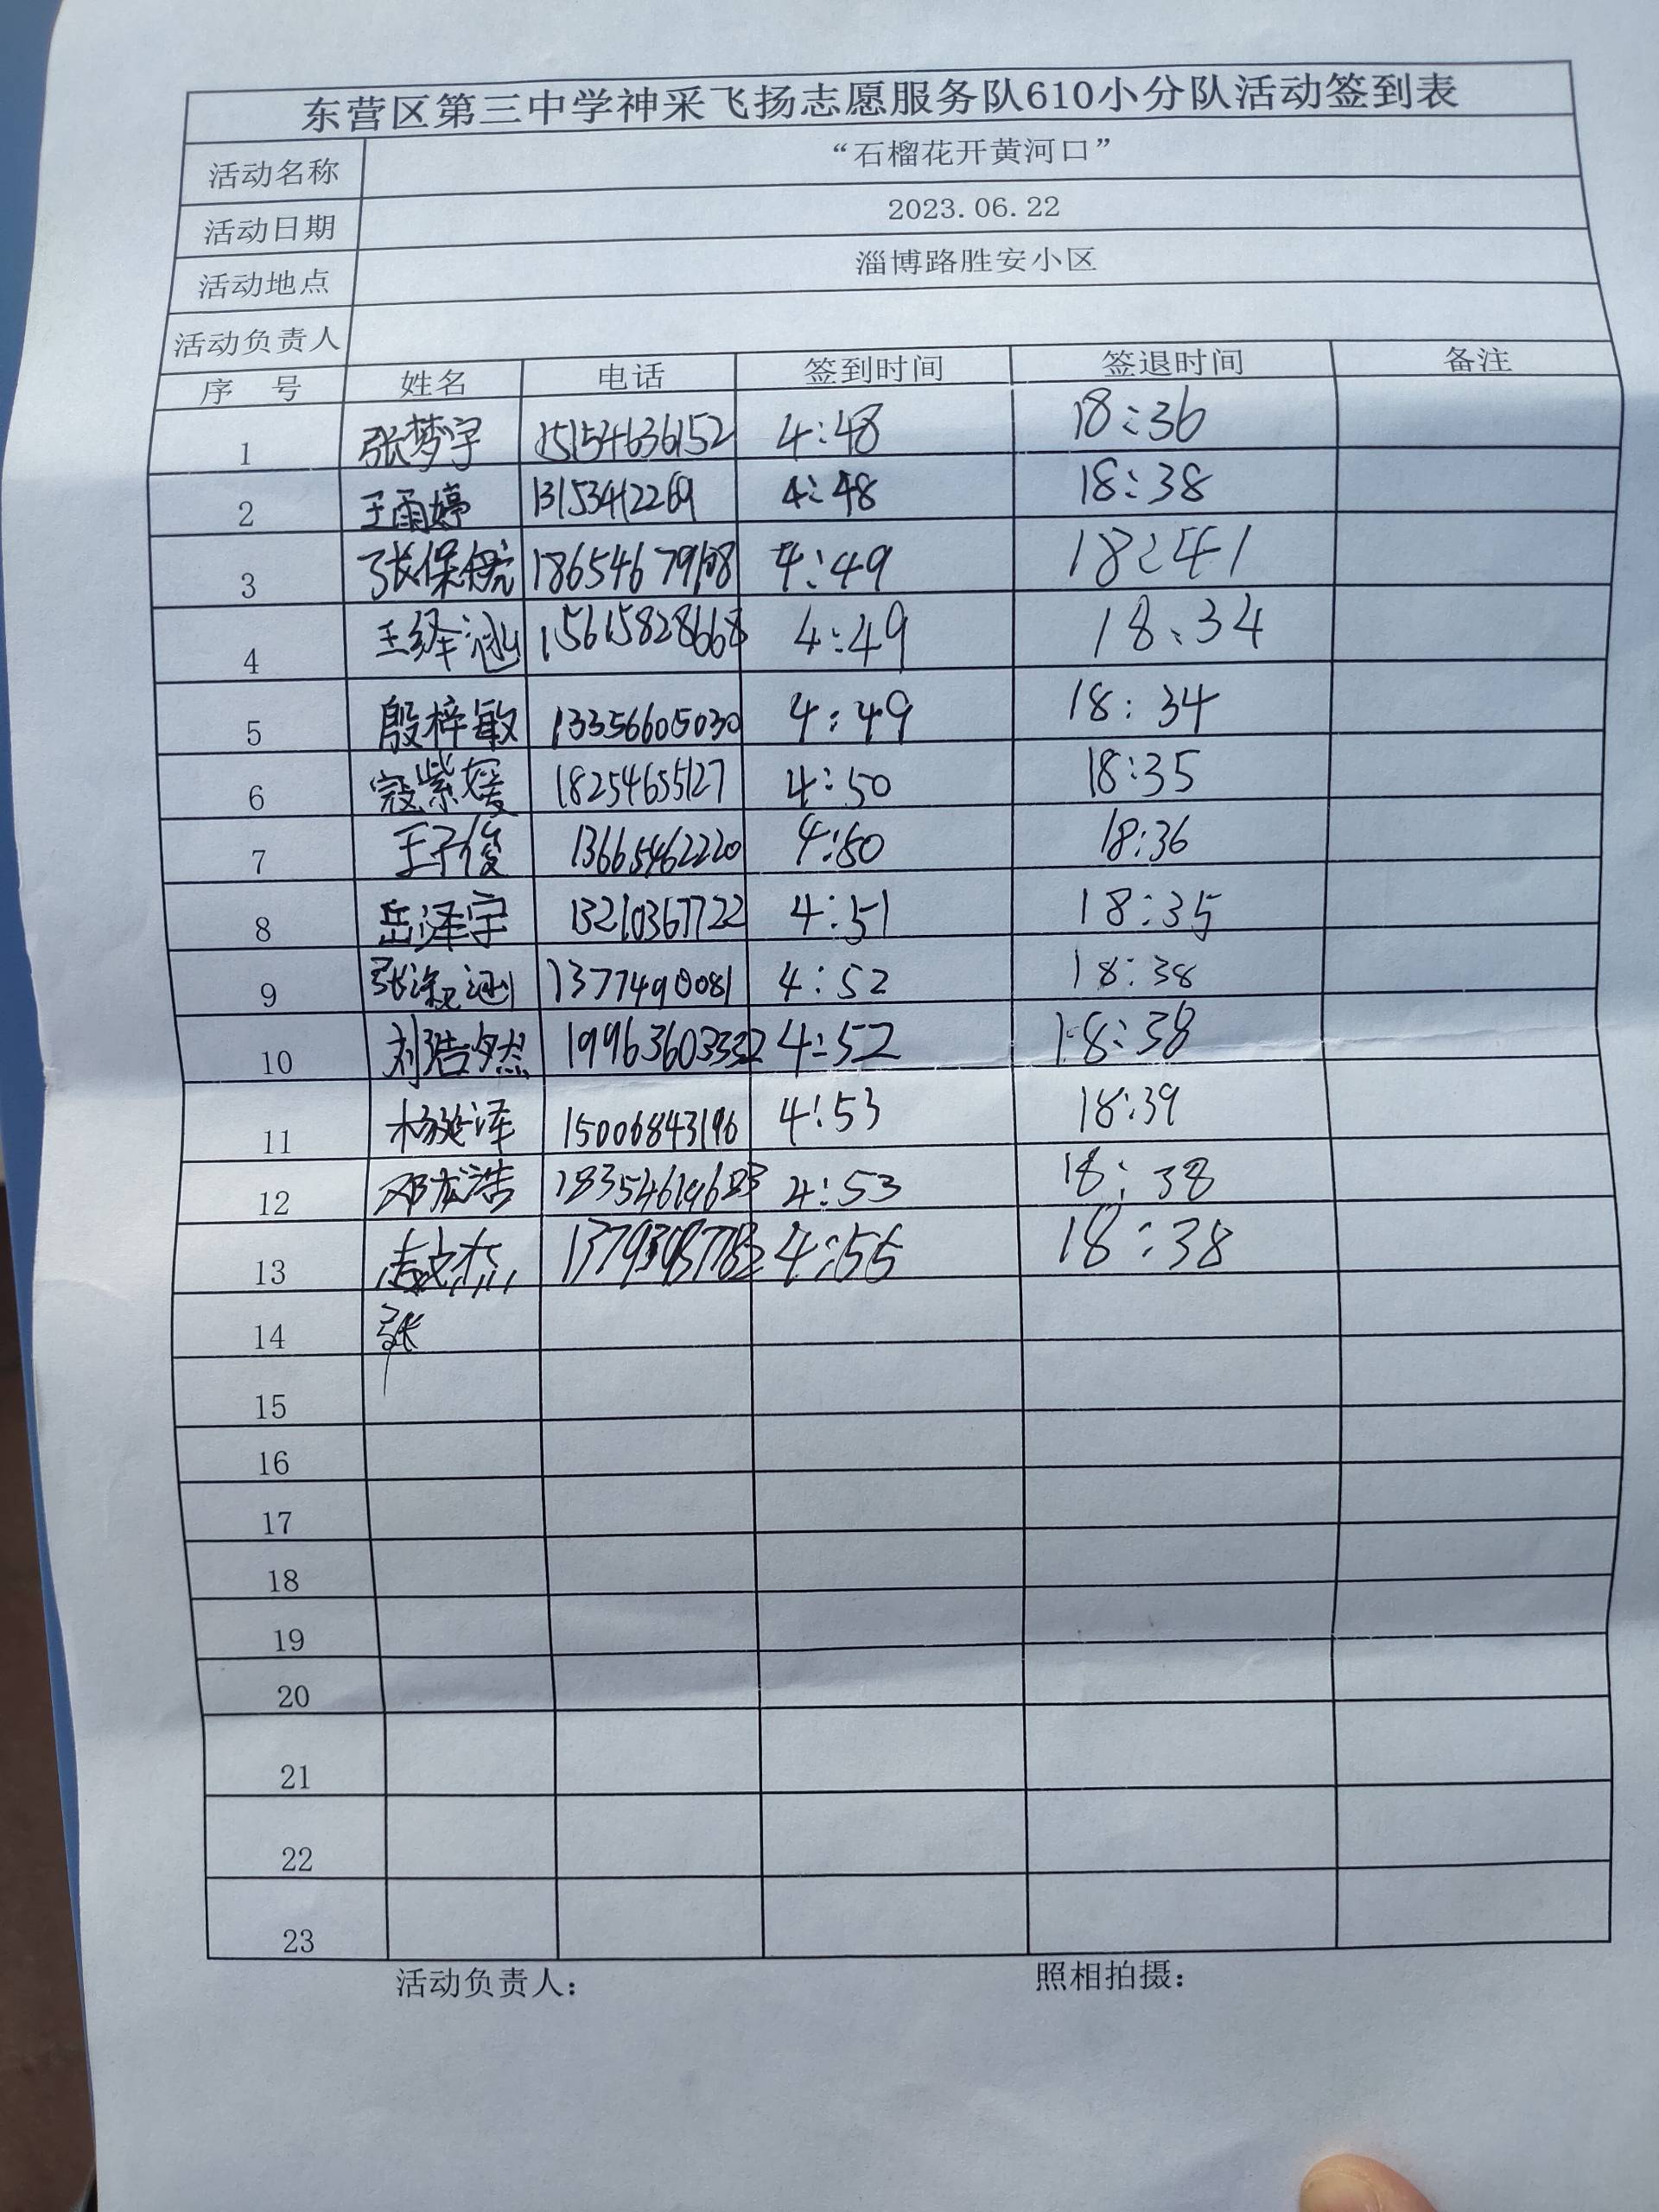 东营区第三中学神采飞扬志愿服务队610小分队活动签到表
活动名称 “石榴花开黄河口”
活动日期 2023.06.22
活动地点 淄博路胜安小区
活动负责人
序 号 姓名 电话 签到时间 签退时间 备注
1 张梦宇 15154636152 4:48 18:36
2 王雨婷 13153412269 4:48 18:38
3 张保 4:49 18:41
4 王绎涵 15615828668 4:49 18:34
5 殷梓敏 13356605030 4:49 18:34
6 寇紫媛 18254655127 4:50 18:35
7 王子俊 13665462220 4:50 18:36
8 岳泽宇 13210367722 4:51 18:35
9 张涵 4:52 18:38
10 刘浩然 19963603332 4:52 18:38
11 杨延泽 15006843196 4:53 18:39
12 邓龙浩 4:53 18:38
13 4:55 18:38
14 张
15
16
17
18
19
20
21
22
23
活动负责人： 照相拍摄：